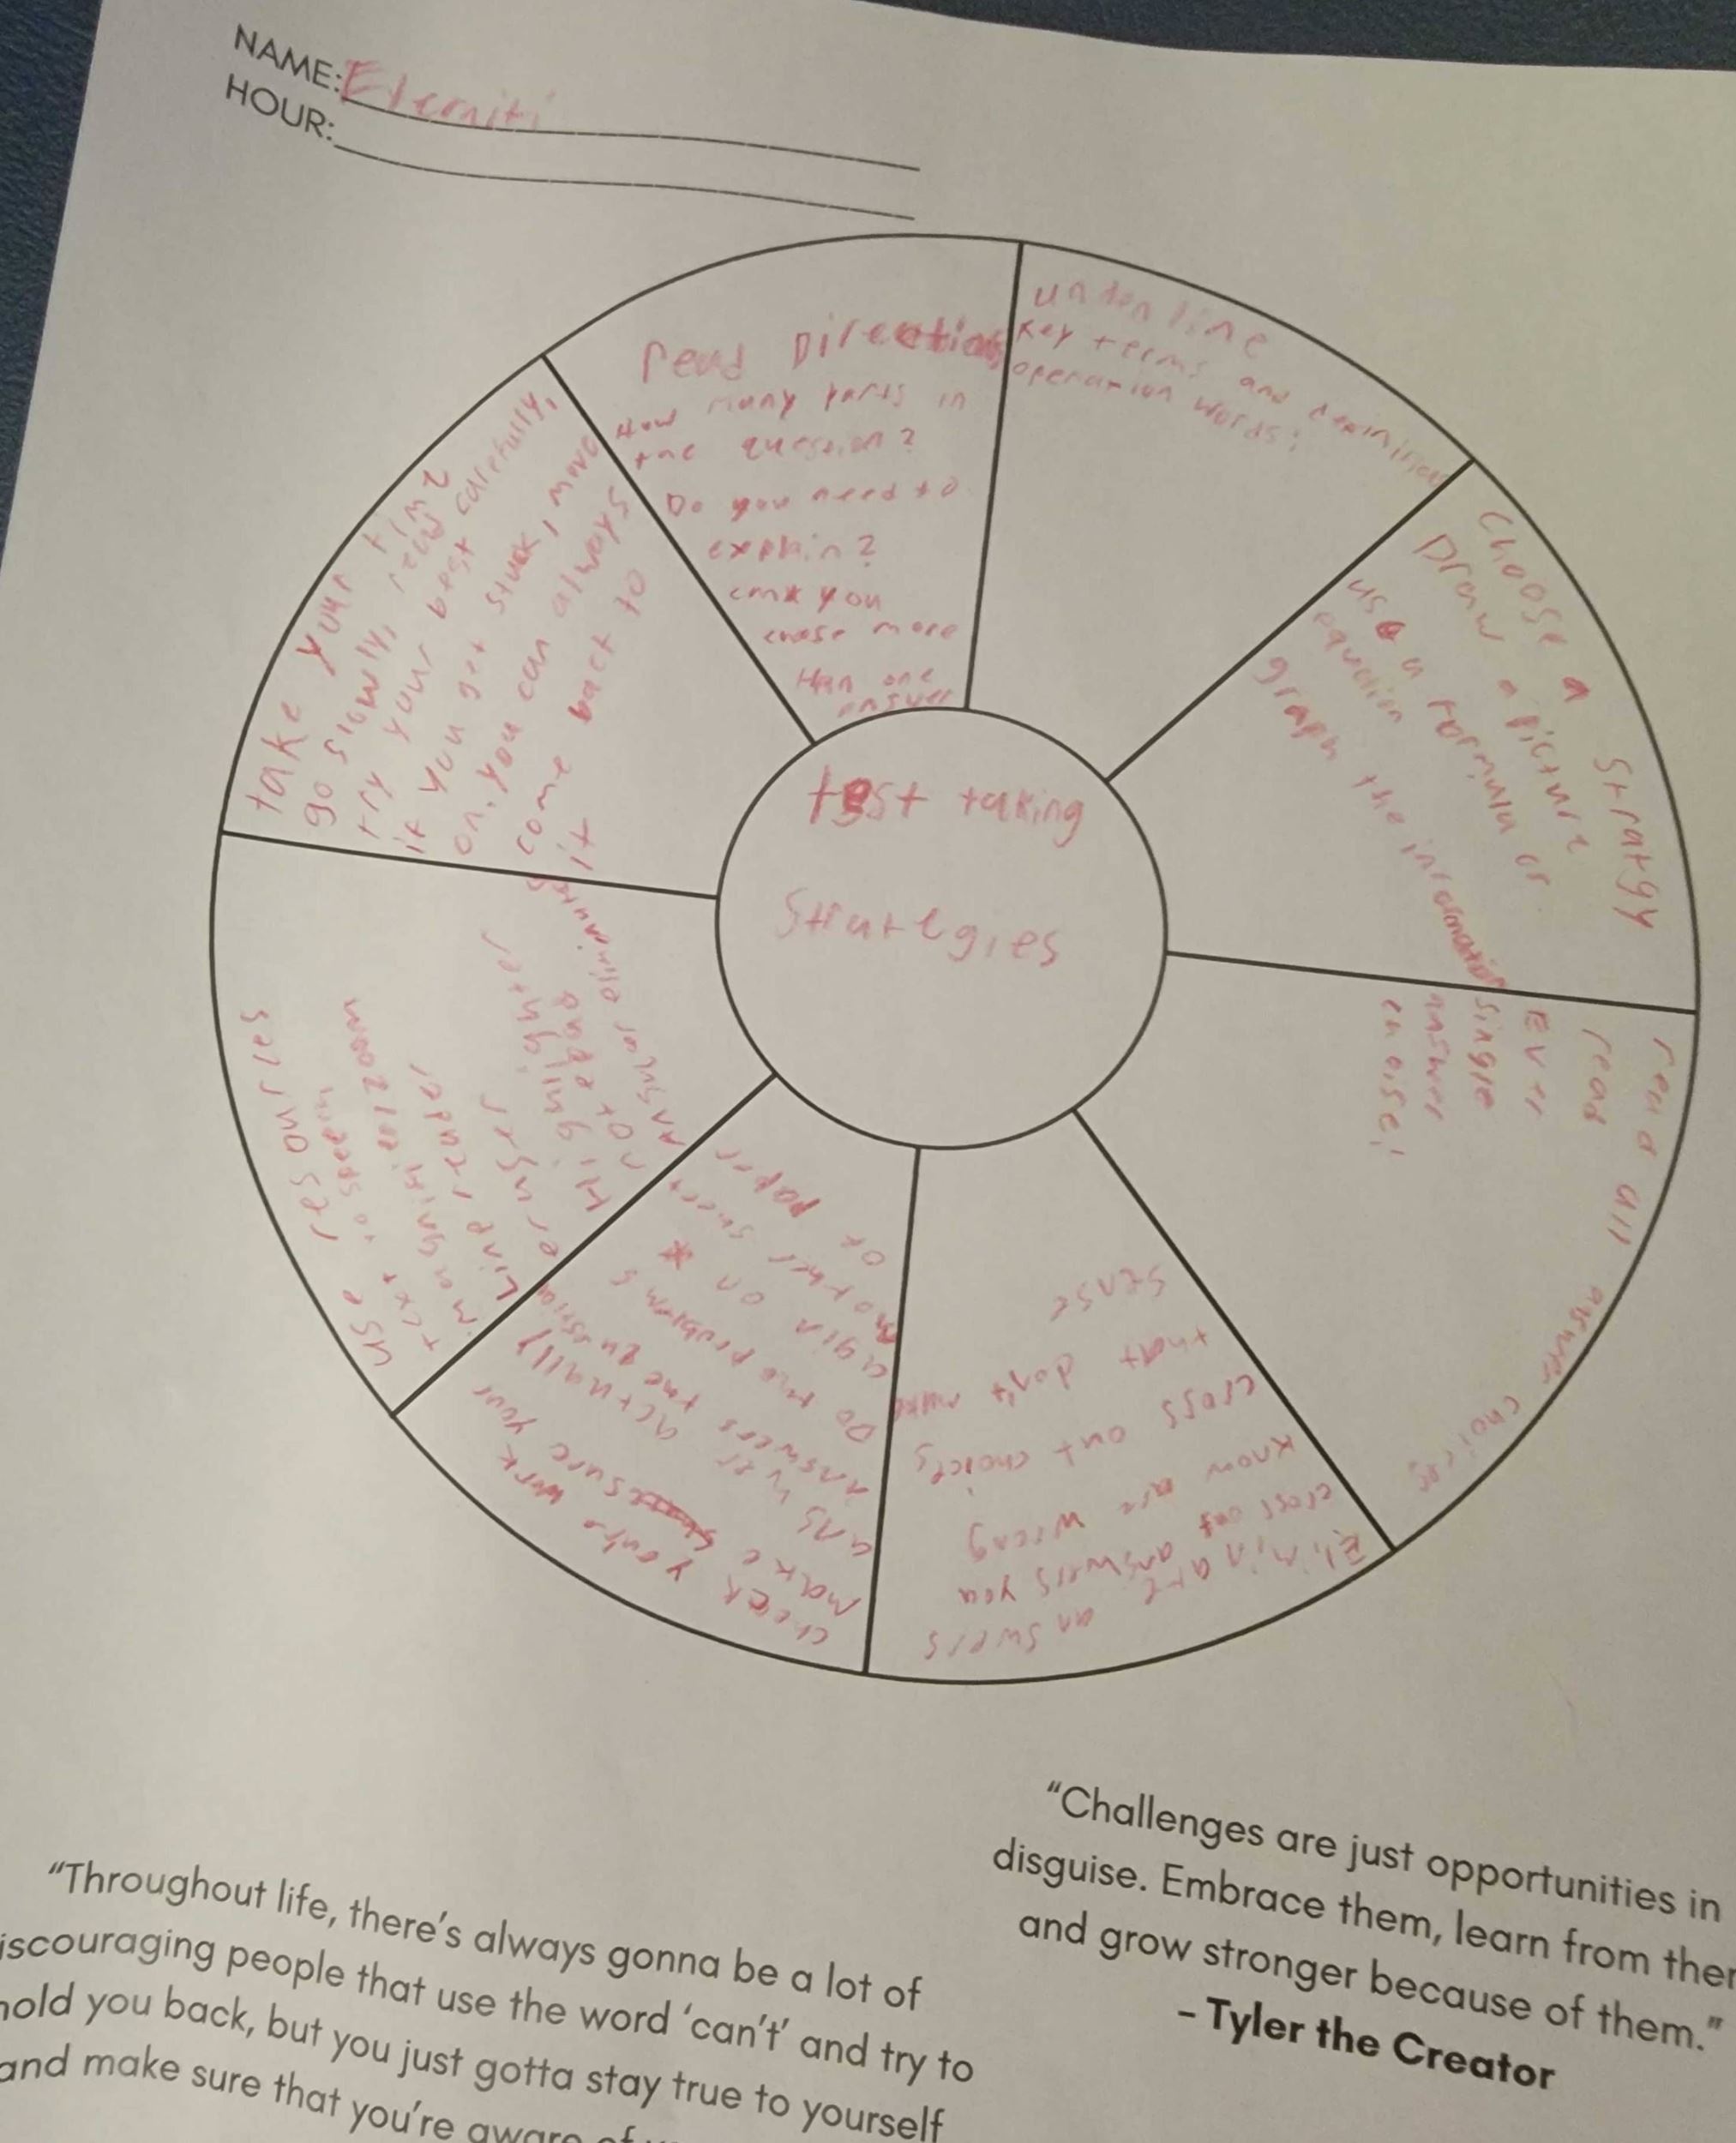 NAME: Eterniti
HOUR:
test taking
Strategies
read Directions
How many parts in
the question?
Do you need to
explain?
you
chose more
than one
answer
underline
key terms and
operation words:
Choose a stratgy
Draw a picture
use a formula or
graph the information
read all answer choices
read
Single
answer
choise!
Eliminate answers
cross out answers you
know are wrong
cross out choices
that don't make
sense
check your work
make sure your
answer actually
answers the
Do the problems
agin on *
another sheet
of paper
use resources
text to speech
magnifier/zoom
Line reader
eraser
Highlighter
notepad
Answer eliminator
take your time
go slowly, read carefully,
try your best
if you get stuck, move
on. you can always
come back to
it
"Challenges are just opportunities in
disguise. Embrace them, learn from
and grow stronger because of them."
- Tyler the Creator
"Throughout life, there's always gonna be a lot of
iscouraging people that use the word 'can't' and try to
hold you back, but you just gotta stay true to yourself
and make sure that you're aware of